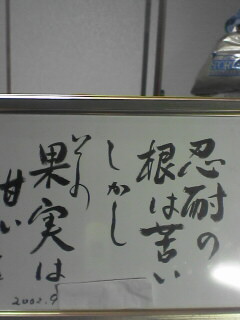 忍耐の
根は苦い
しかし
その
果実は
甘い
2002.9